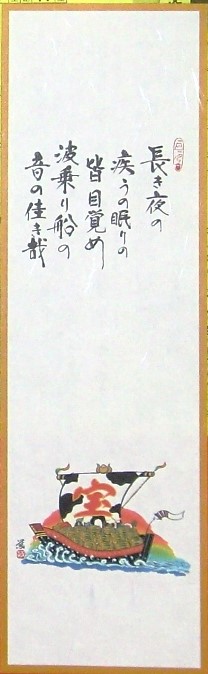 長き夜の
疾うの眠りの
皆目覚め
波乗り船の
音の佳き哉
宝